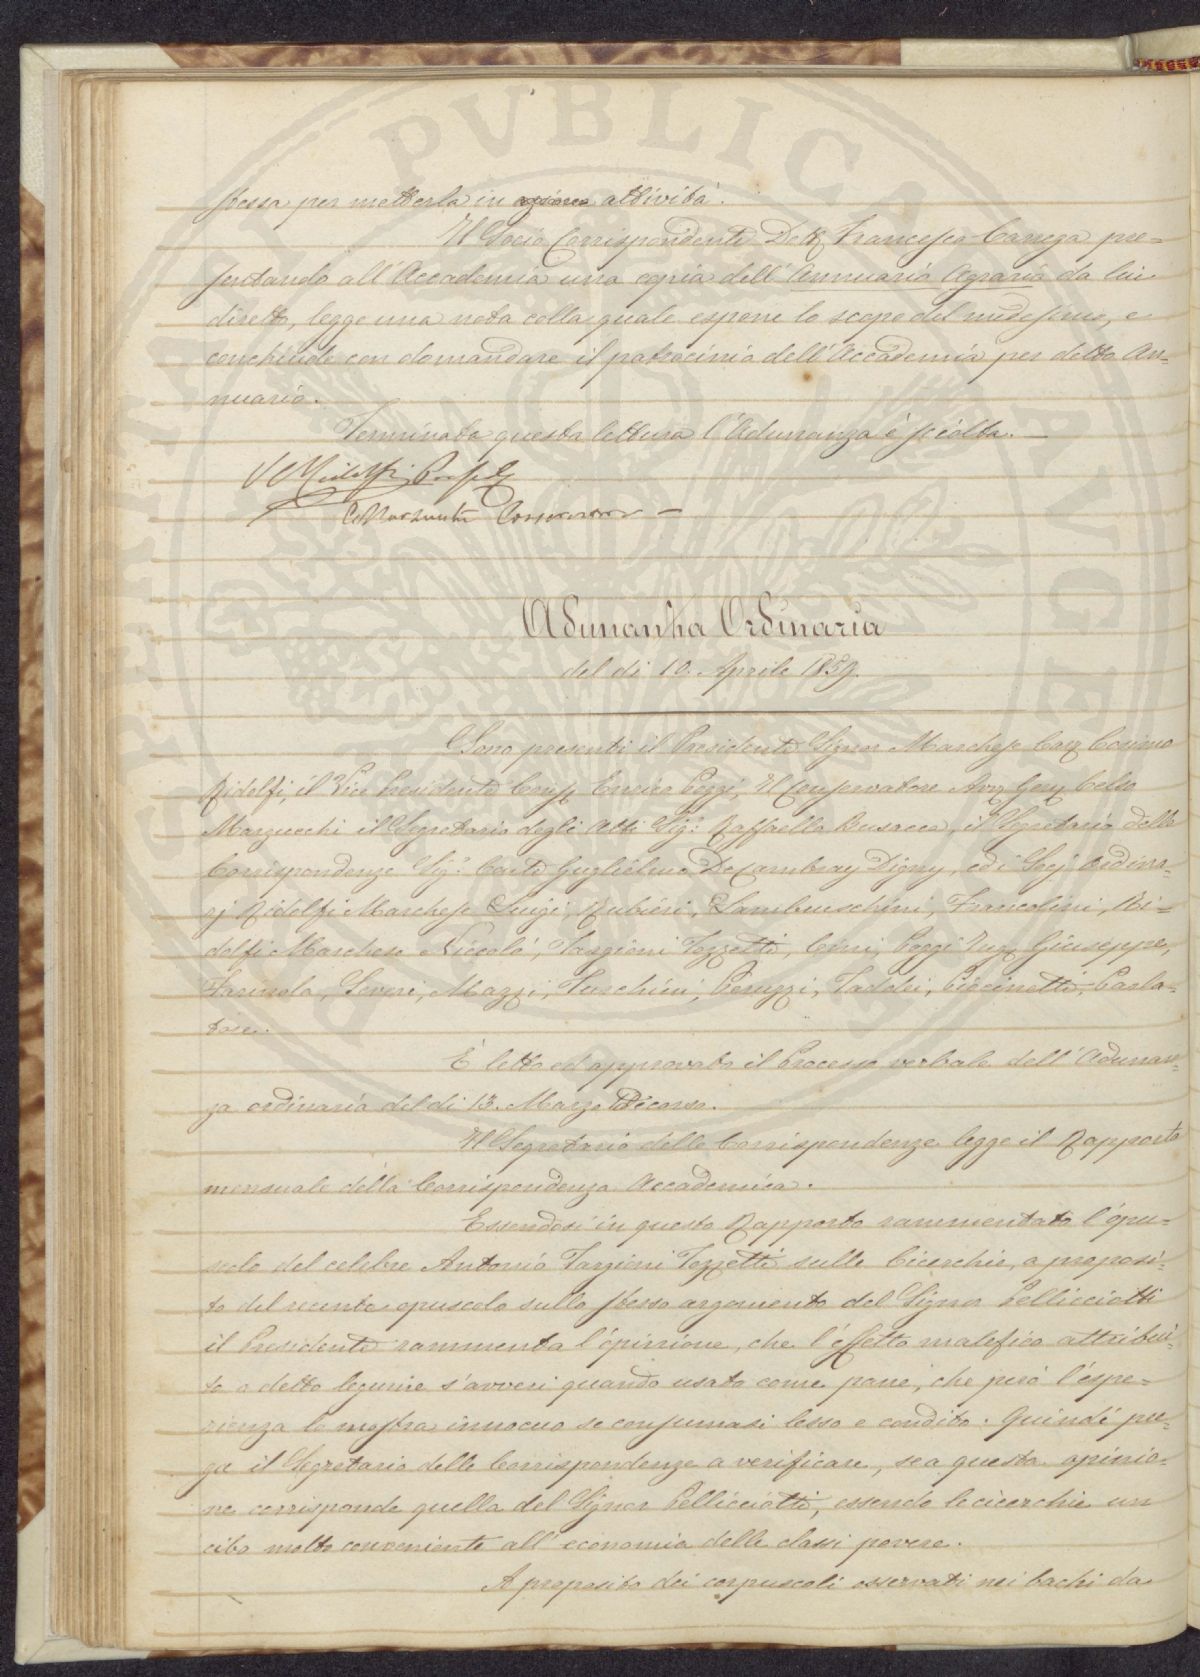 stessa per metterla in azione attività.
Il Socio Corrispondente Dott. Francesco Carrega pre=
sentando all'Accademia una copia dell'Annuario Agrario da lui
diretto, legge una nota colla quale espone lo scopo del medesimo, e
conchiude con domandare il patrocinio dell'Accademia per detto An=
nuario.
Terminata questa lettura l'Adunanza è sciolta.—
C Ridolfi Pres.
C Marzucchi Conservatore —
Adunanza Ordinaria
del dì 10. Aprile 1859.
Sono presenti il Presidente Signor Marchese Cav. Cosimo
Ridolfi, il Vice Presidente Enrico Poggi, Il Conservatore Avv. Celso
Marzucchi il Segretario degli Atti Sig.r Raffaello Busacca, il Segretario delle
Corrispondenze Sig.r Conte Guglielmo De Cambray Digny, ed i Socj Ordina=
rj Ridolfi Marchese Luigi, Rubieri, Lambruschini, Francolini, Ri=
dolfi Marchese Niccolò, Targioni Tozzetti, Cini, Poggi Giuseppe,
Farinola, Severi, Mazzi, Luschini, Peruzzi, Taddei, Piccinetti, Parla=
tore.
È letto ed approvato il Processo verbale dell'Adunan=
za ordinaria del dì 13. Marzo Decorso.
Il Segretario delle Corrispondenze legge il Rapporto
mensuale della Corrispondenza Accademica.
Essendosi in questo Rapporto rammentato l'opu=
scolo del celebre Antonio Targioni Tozzetti sulle Cicerchie, a proposi=
to del recente opuscolo sullo stesso argomento del Signor Pellicciotti
il Presidente rammenta l'opinione, che l'effetto malefico attribui=
to a detto legume s'avveri quando usato come pane, che però l'espe=
rienza lo mostra innocuo se consumasi lesso e condito. Quindi pre=
ga il Segretario delle Corrispondenze a verificare, se a questa opinio=
ne corrisponde quella del Signor Pellicciotti, essendo le cicerchie un
cibo molto conveniente all'economia delle classi povere.
A proposito dei corpuscoli osservati nei bachi da